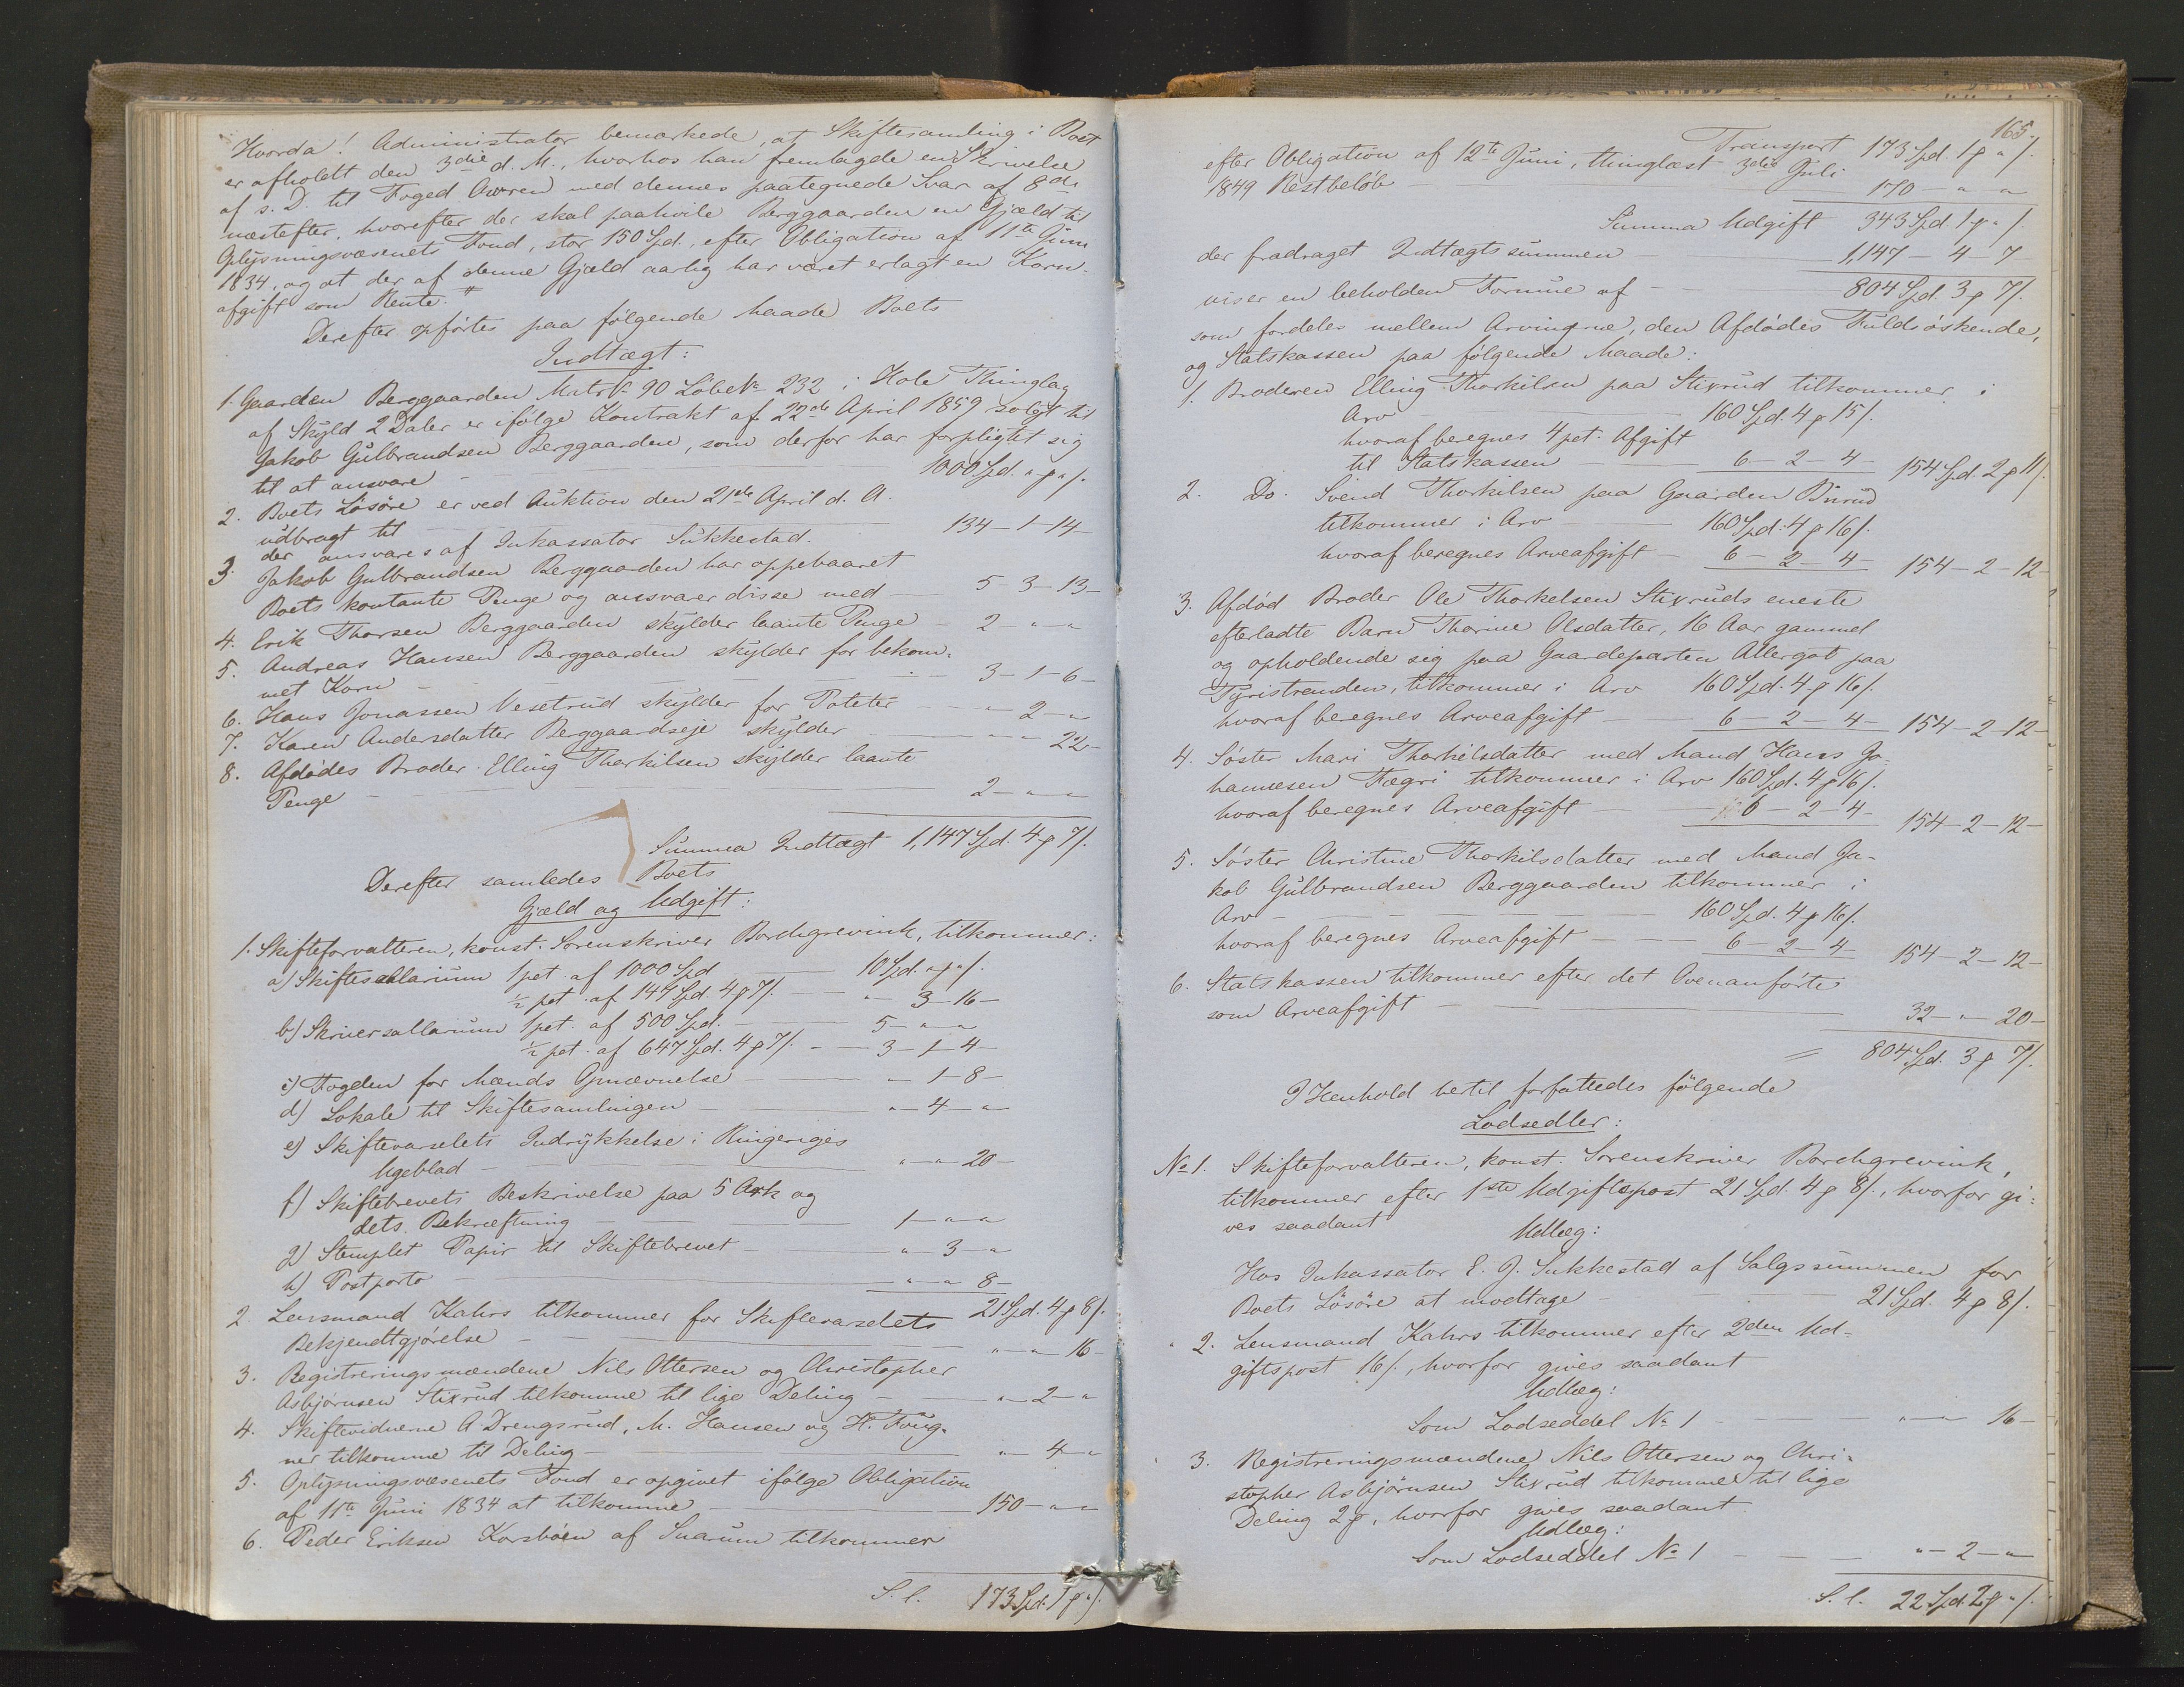 Hvorda! Administrator bemærkede, at Skiftesamling i Boet
er afholdt den 3die d. M., hvorhos han fremlagde en Skrivelse
af s. D. til Foged med dennes paategnede Svar af 8de
næstefter, hvorefter der skal paahvile Berggaarden en Gjæld til
Oplysningsvæsenets Fond, stor 150 Spd., efter Obligation af 11te Juni
1834, og at der af denne Gjæld aarlig har været erlagt en Korn-
afgift som Rente."
Derefter opførtes paa følgende Maade Boets
Indtægt:
1. Gaarden Berggaarden Matr No 90 Løbe No 232 i Hole Thinglag
af Skyld 2 Daler er ifølge Kontrakt af 22de April 1859 solgt til
Jakob Gulbrandsen Berggaarden, som derfor har forpligtet sig
til at ansvare - 1000 Spd. " ß " /.
2. Boets Løsøre er ved Auktion den 21de April d. A.
udbragt til - 134 - 1 - 14 -
der ansvares af Inkassator Sukkestad.
3. Jakob Gulbrandsen Berggaarden har oppebaaret
Boets kontante Penge og ansvarer disse med - 5 - 3 - 13 -
4. Erik Thorsen Berggaarden skylder laante Penge - 2 - " - "
5. Andreas Hansen Berggaarden skylder for bekom-
met Korn - 3 - 1 - 6 -
6. Hans Jonassen Vesetrud skylder for Poteter - " - 2 - "
7. Karen Andersdatter Berggaardseje skylder - " - " 22 -
8. Afdødes Broder Elling Thorkilsen skylder laante
Penge - 2 - " - "
Summa Indtægt 1,147 Spd. 4 ß 7 /.
Derefter samledes Boets
Gjæld og Udgift:
1. Skifteforvalteren, konst. Sorenskriver Borchgrevink, tilkommer:
a) Skiftesallarium 1 pct. af 1000 Spd - 10 Spd. " ß " /.
½ pct. af 147 Spd. 4 ß 7 /. - " - 3 - 16 -
b) Skriversallarium 1 pct. af 500 Spd. - 5 - " - "
½ pct. af 647 Spd. 4 ß 7 /. - 3 - 1 - 4 -
c) Fogden for Mænds Opnævnelse - " - 1 - 8 -
d) Lokale til Skiftesamlingen - " - 4 - "
e) Skiftevarselets Indrykkelse i Ringeriges
Ugeblad - " - " - 20 -
f) Skiftebrevets Beskrivelse paa 5 Ark og
dets Bekræftning - 1 - " - "
g) Stemplet Papir til Skiftebrevet " - 3 - "
h) Postporto - " - " 8 -
21 Spd. 4 ß 8 /.
2 Lensmand Kahrs tilkommer for Skiftevarselets
Bekjendtgjørelse - " - " 16 -
3. Registreringsmændene Nils Ottersen og Christopher
Asbjørnsen Stixrud tilkomme til lige Deling - " - 2 - "
4. Skiftevidnerne A Drengsrud, M. Hansen og H. Foug-
ner tilkomme til Deling - " - 4 - "
5. Oplysningsvæsenets Fond er opgivet ifølge Obligation
af 11te Juni 1834 at tilkomme - 150 - " - "
6. Peder Eriksen Korsbøen af Snarum tilkommer
S. l. 173 Spd. 1 ß " /.
165.
Transport 173 Spd. 1 ß " /.
efter Obligation af 12te Juni, thinglæst 3die Juli
1849 Restbeløb - 170 - " - "
Summa Udgift 343 Spd. 1 ß " /.
der fradraget Indtægtssummen 1,147 - 4 - 7
viser en beholden Formue af - 804 Spd. 3 ß 7 /.
som fordeles mellem Arvingerne, den Afdødes Fuldsøskende,
og Statskassen paa følgende Maade:
1. Broderen Elling Thorkilsen paa Stixrud tilkommer i
Arv - 160 Spd. 4 ß 15 /.
hvoraf beregnes 4 pct. Afgift
til Statskassen - 6 - 2 - 4 - 154 Spd. 2 ß 11 /.
2. Do. Svend Thorkilsen paa Gaarden Bürud
tilkommer i Arv - 160 Spd. 4 ß 16 /.
hvoraf beregnes Arveafgift - 6 - 2 - 4 - 154 - 2 - 12 -
3. Afdød Broder Ole Thorkelsen Stixruds eneste
efterladte Barn Thorine Olsdatter, 16 Aar gammel
og opholdende sig paa Gaardeparten Allergot paa
Tyristranden, tilkommer i Arv 160 Spd. 4 ß 16 /.
hvoraf beregnes Arveafgift - 6 - 2 - 4 - 154 - 2 - 12 -
4. Søster Mari Thorkilsdatter med Mand Hans Jo-
hannesen Fægri tilkommer i Arv 160 Spd. 4 ß 16 /.
hvoraf beregnes Arveafgift - 6 - 2 - 4 - 154 - 2 - 12 -
5. Søster Christine Thorkilsdatter med Mand Ja-
kob Gulbrandsen Berggaarden tilkommer i
Arv - 160 Spd. 4 ß 16 /.
hvoraf beregnes Arveafgift - 6 - 2 - 4 - 154 - 2 - 12 -
6. Statskassen tilkommer efter det Ovenanførte
som Arveafgift - 32 - " - 20 -
= 804 Spd. 3 ß 7 /.
I Henhold hertil forfattedes følgende
Lodsedler:
No 1. Skifteforvalteren, konst. Sorenskriver Borchgrevink,
tilkommer efter 1ste Udgiftspost 21 Spd. 4 ß 8 /., hvorfor gi-
ves saadant
Udlæg:
Hos Inkassator E. J. Sukkestad af Salgssummen for
Boets Løsøre at modtage - 21 Spd. 4 ß 8 /.
" 2. Lensmand Kahrs tilkommer efter 2den Ud-
giftspost 16 /., hvorfor gives saadant
Udlæg:
Som Lodseddel No 1 - " - " 16 -
" 3. Registreringsmændene Nils Ottersen og Chri-
stopher Asbjørnsen Stixrud tilkomme til lige
Deling 2 ß, hvorfor gives saadant
Udlæg:
Som Lodseddel No 1 - " - 2 - "
S. l. 22 Spd. 2 ß " /.